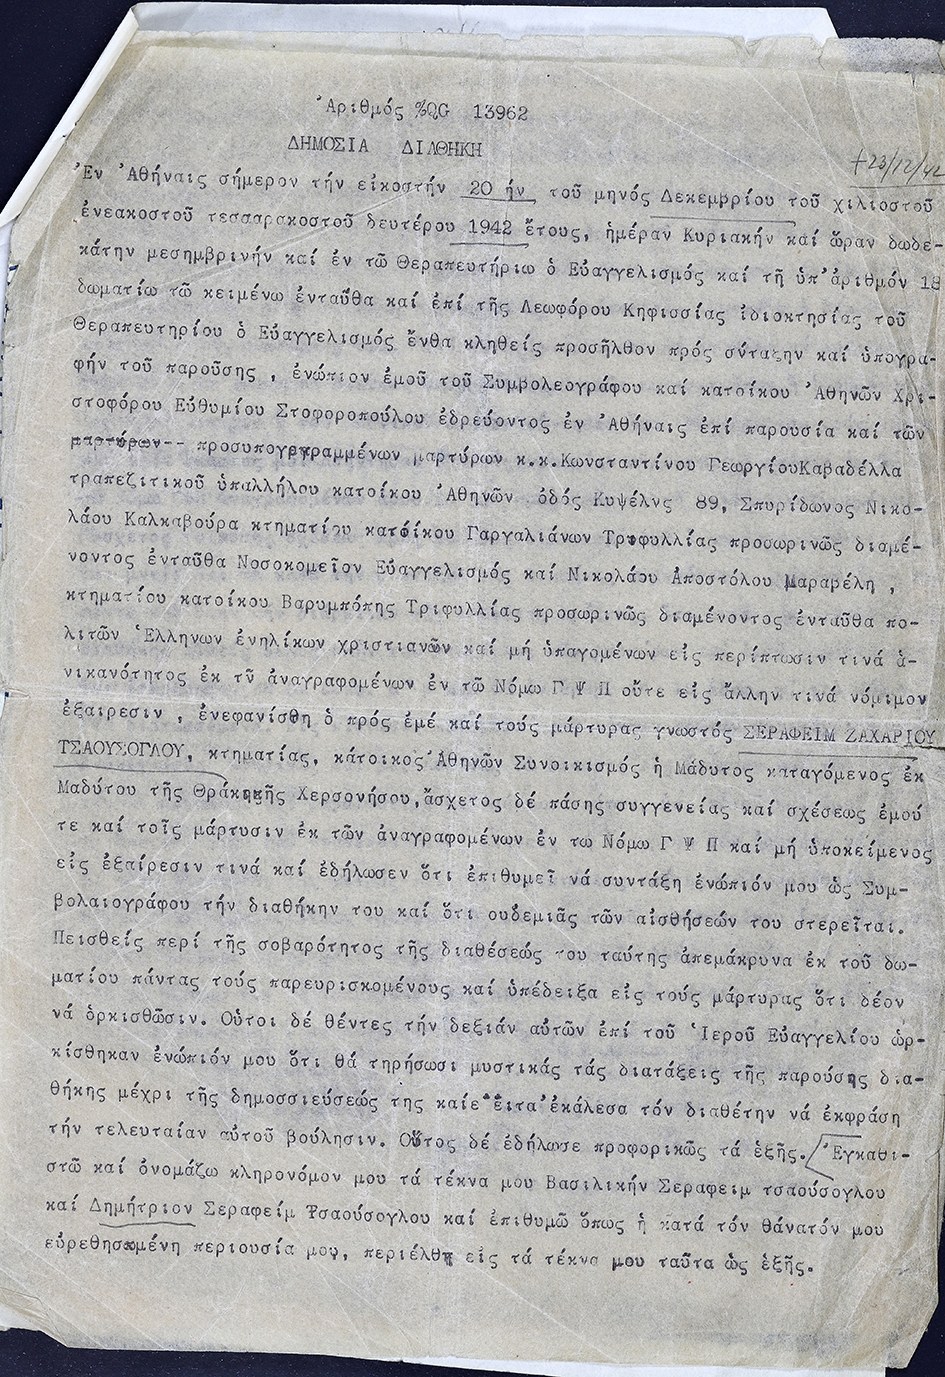 Ἀριθμός %QG 13962
ΔΗΜΟΣΙΑ ΔΙΑΘΗΚΗ
+23/12/42
Ἐν Ἀθήναις σήμερον τήν εἰκοστήν 20 ήν τοῦ μηνός Δεκεμβρίου τοῦ χιλιοστοῦ
ἐνεακοστοῦ τεσσαρακοστοῦ δευτέρου 1942 ἔτους, ἡμέραν Κυριακήν καί ὥραν δωδε-
κάτην μεσημβρινήν καί ἐν τῶ Θεραπευτήριω ὁ Εὐαγγελισμός καί τῆ ὑπ' ἀριθμόν 18
δωματίω τῶ κειμένω ἐνταῦθα καί ἐπί τῆς Λεωφόρου Κηφισσίας ἰδιοκτησίας τοῦ
Θεραπευτηρίου ὁ Εὐαγγελισμός ἔνθα κληθείς προσῆλθον πρός σύνταξην καί ὑπογρα-
φήν τοῦ παροῦσης , ἐνώπιον ἐμοῦ τοῦ Συμβολεογράφου καί κατοίκου Ἀθηνῶν Χρι-
στοφόρου Εὐθυμίου Στοφοροπούλου ἐδρεύοντος ἐν Ἀθήναις ἐπί παρουσία καί τῶν
μαρτύρων-- προσυπογεγραμμένων μαρτύρων κ.κ.Κωνσταντίνου ΓεωργίουΚαβαδέλλα
τραπεζιτικοῦ ὑπαλλήλου κατοίκου Ἀθηνῶν ὁδός Κυψέλης 89, Σπυρίδωνος Νικο-
λάου Καλκαβούρα κτηματίου κατοίκου Γαργαλιάνων Τριφυλλίας προσωρινῶς διαμέ-
νοντος ἐνταῦθα Νοσοκομεῖον Εὐαγγελισμός καί Νικολάου Ἀποστόλου Μαραβέλη ,
κτηματίου κατοίκου Βαρυμπόπης Τριφυλλίας προσωρινῶς διαμένοντος ἐνταῦθα πο-
λιτῶν Ἑλληνων ἐνηλίκων χριστιανῶν καί μή ὑπαγομένων εἰς περίπτωσιν τινά ἀ-
νικανότητος ἐκ τῶν ἀναγραφομένων ἐν τῶ Νόμω Γ Ψ Π οὔτε εἰς ἄλλην τινά νόμιμον
ἐξαιρεσιν , ἐνεφανίσθη ὁ πρός ἐμέ καί τούς μάρτυρας γνωστός ΣΕΡΑΦΕΙΜ ΖΑΧΑΡΙΟΥ
ΤΣΑΟΥΣΟΓΛΟΥ, κτηματίας, κάτοικος Ἀθηνῶν Συνοικισμός ἡ Μάδυτος καταγόμενος ἐκ
Μαδύτου τῆς Θράκικῆς Χερσονήσου,ἄσχετος δέ πάσης συγγενείας καί σχέσεως ἐμοῦ
τε καί τοῖς μάρτυσιν ἐκ τῶν ἀναγραφομένων ἐν τω Νόμω Γ Ψ Π καί μή ὑποκείμενος
εἰς ἐξαίρεσιν τινά καί ἐδήλωσεν ὅτι ἐπιθυμεῖ νά συντάξη ἐνώπιόν μου ὡς Συμ-
βολαιογράφου τήν διαθήκην του καί ὅτι ουδεμιᾶς τῶν αἰσθήσεών του στερεῖται.
Πεισθείς περί τῆς σοβαρότητος τῆς διαθέσεώς του ταύτης ἀπεμάκρυνα ἐκ τοῦ δω-
ματίου πάντας τούς παρευρισκομένους καί ὑπέδειξα εἰς τούς μάρτυρας ὅτι δέον
νά ὁρκισθῶσιν. Οὗτοι δέ θέντες τήν δεξιάν αὐτῶν ἐπί τοῦ Ἱεροῦ Εὐαγγελίου ὡρ-
κίσθηκαν ἐνώπιόν μου ὅτι θά τηρήσωσι μυστικάς τάς διατάξεις τῆς παρούσης δια-
θήκης μέχρι τῆς δημοσσιεύσεώς της καί ἐκάλεσα τόν διαθέτην νά ἐκφράση
τήν τελευταίαν αὐτοῦ βούλησιν. Οὗτος δέ ἐδήλωσε προφορικῶς τά ἑξῆς. Ἐγκαθι-
στῶ καί ὀνομάζω κληρονόμον μου τά τέκνα μου Βασιλικήν Σεραφειμ τσαούσογλου
καί Δημήτριον Σεραφείμ Τσαούσογλου καί ἐπιθυμῶ ὅπως ἡ κατά τόν θάνατόν μου
εὑρεθησομένη περιουσία μου, περιέλθη εἰς τά τέκνα μου ταῦτα ὡς ἑξῆς.